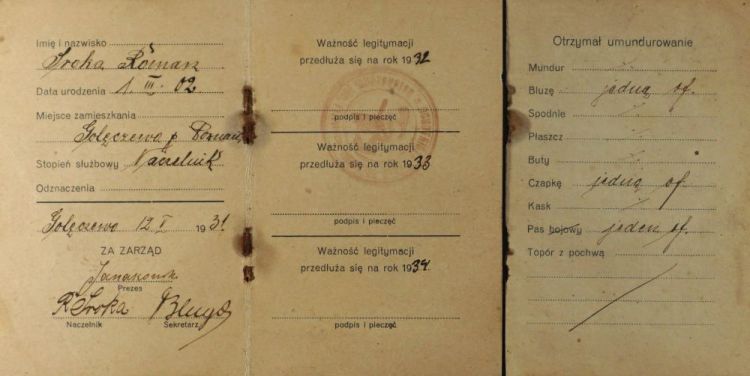 Imię i nazwisko
Sroka Roman
Data urodzenia 1. III. 02
Miejsce zamieszkania
Golęczewo p. Poznań
Stopień służbowy Naczelnik
Odznaczenia
Golęczewo 12 I 1931
ZA ZARZĄD
Prezes
R Sroka
Naczelnik Sekretarz
Ważność legitymacji
przedłuża się na rok 1932
podpis i pieczęć
Ważność legitymacji
przedłuża się na rok 1933
podpis i pieczęć
Ważność legitymacji
przedłuża się na rok 1934
podpis i pieczęć
Otrzymał umundurowanie
Mundur
Bluzę jedną of.
Spodnie
Płaszcz
Buty
Czapkę jedną of.
Kask
Pas bojowy jeden of.
Topór z pochwą